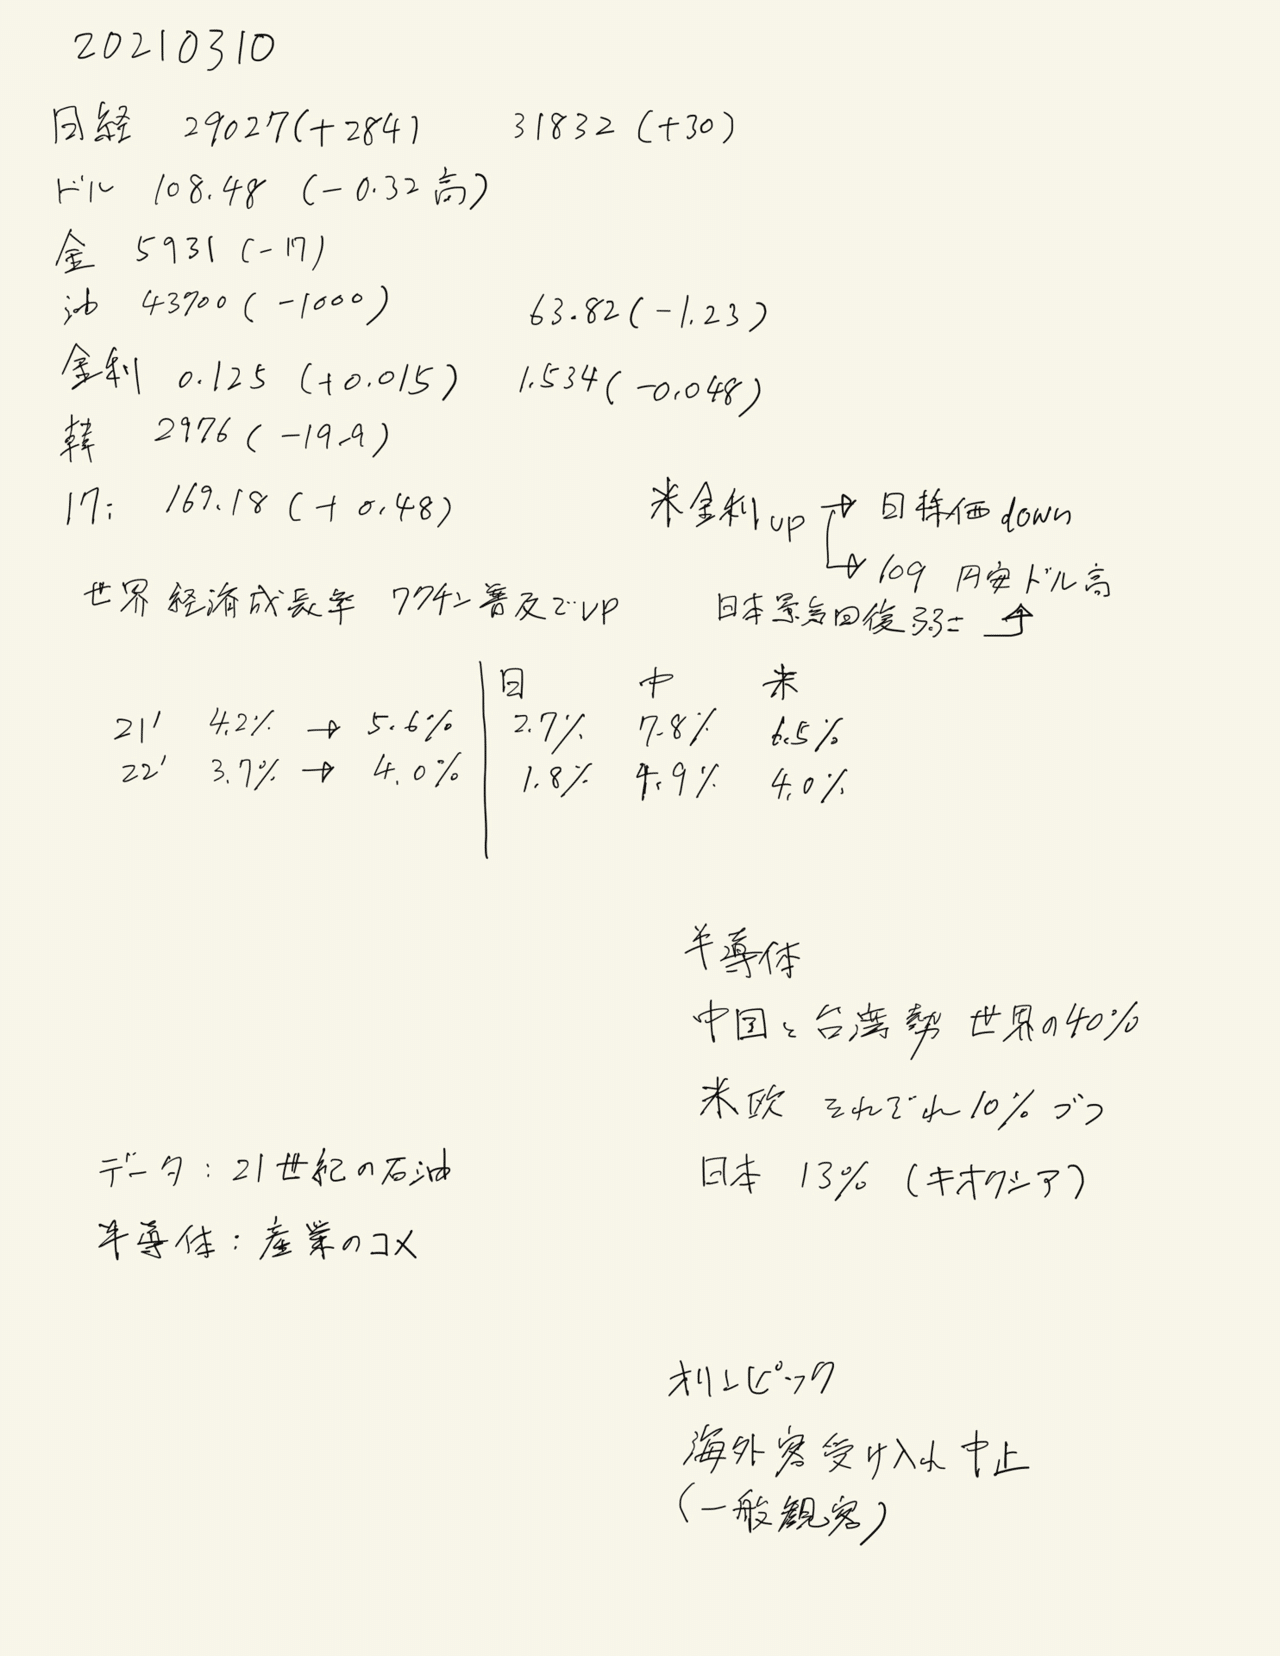 20210310
日経 29027(+284) 31832 (+30)
ドル 108.48 (-0.32高)
金 5931 (-17)
油 43700 (-1000) 63.82 (-1.23)
金利 0.125 (+0.015) 1.534 (-0.048)
韓 2976 (-19.9)
17: 169.18 (+0.48)
米金利up → 日株価down
→ 109 円安ドル高
世界経済成長率 ワクチン普及でup
日本景気回復弱さ
日 中 米
21' 4.2% → 5.6% 2.7% 7.8% 6.5%
22' 3.7% → 4.0% 1.8% 4.9% 4.0%
半導体
中国と台湾勢 世界の40%
米欧 それぞれ10%づつ
日本 13% (キオクシア)
データ:21世紀の石油
半導体:産業のコメ
オリンピック
海外客受け入れ中止
(一般観客)